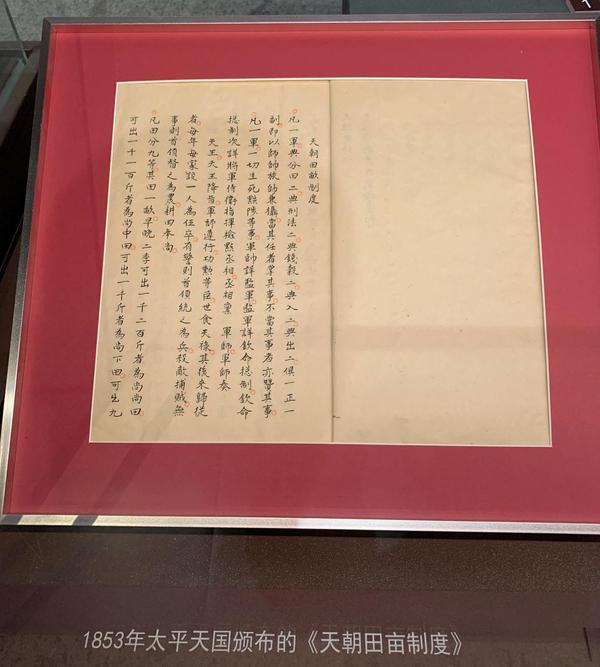 天朝田畝制度
凡一軍典分田二典刑法二典錢穀二典入二典出二俱一正一
副即以師帥旅帥兼攝當其任者掌其事不當其事者亦贊其事
凡一軍一切生死黜陟等事軍帥詳監軍監軍詳欽命總制欽命
總制次詳將軍侍衛指揮檢點丞相丞相稟 軍師軍師奏
天王天王降旨軍師遵行功勳等臣世食天祿其後來歸從
者每年每家設一人為伍卒有警則首領統之為兵殺敵捕賊無
事則首領督之為農耕田奉尚
凡田分九等其田一畝早晚二季可出一千二百斤者為尚尚田
可出一千一百斤者為尚中田可出一千斤者為尚下田可出九
1853年太平天国颁布的《天朝田亩制度》